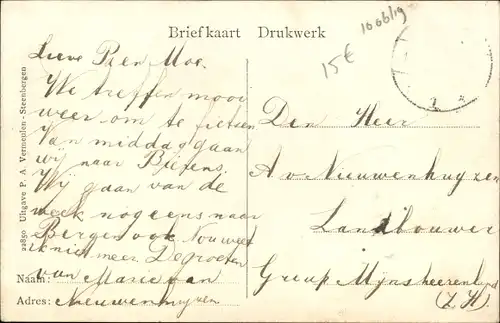 Briefkaart Drukwerk
1066/19
15€
22850 Uitgave P. A. Vermeulen - Steenbergen
Lieve Pa en Moe.
We treffen mooi
weer om te fietsen
Van middag gaan
wij naar Bierens.
Wij gaan van de
week nog eens naar
Bergen ook. Nou weet
ik niet meer. De groeten
van Marie van
Nieuwenhuyzen
Naam:
Adres:
Den Heer
A v. Nieuwenhuyzen
Landbouwer
Greup Mijnsheerenland
(Z.H.)